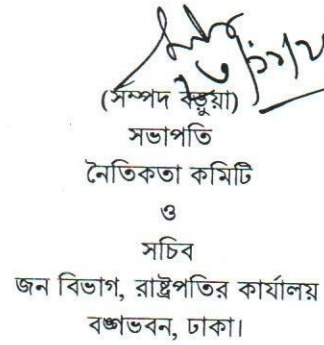 (সম্পদ বড়ুয়া)
সভাপতি
নৈতিকতা কমিটি
ও
সচিব
জন বিভাগ, রাষ্ট্রপতির কার্যালয়
বঙ্গভবন, ঢাকা।